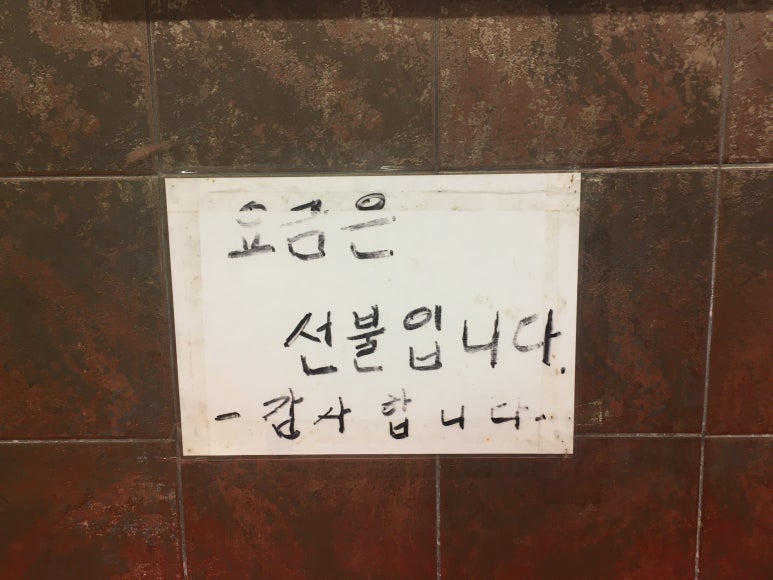 요금은
선불입니다.
- 감사합니다 -